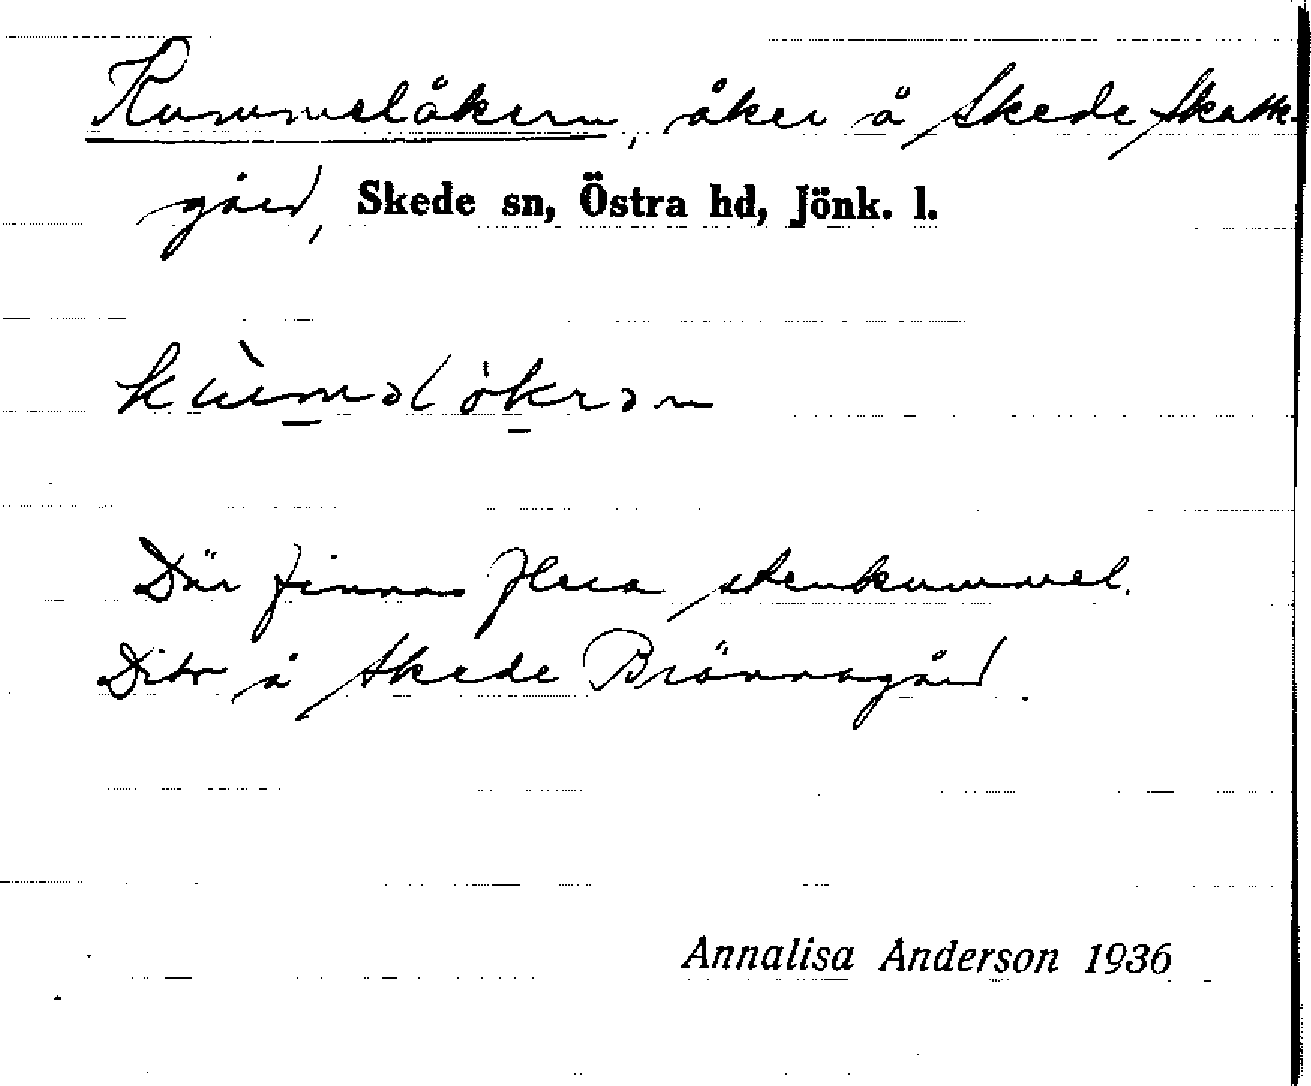 Kummelåkern, åker å Skede Skatte-
gård, Skede sn, Östra hd, Jönk. l.
Där finnas flera stenkummel.
Dito å Skede Brännagård.
Annalisa Anderson 1936